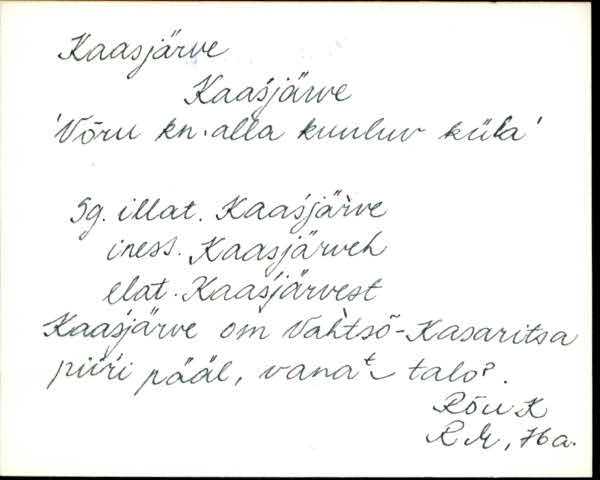 Kaasjärve
Kaaśjärve
'Võru kn. alla kuuluv küla'
Sg. illat. Kaaśjä̀rve
iness. Kaasjärveh
elat. Kaaśjärvest
Kaaśjärve om Vaht́sõ-Kasaritsa
piiri pääl, vanaᵗ talo⁹.
Rõu K
R M, 76 a.